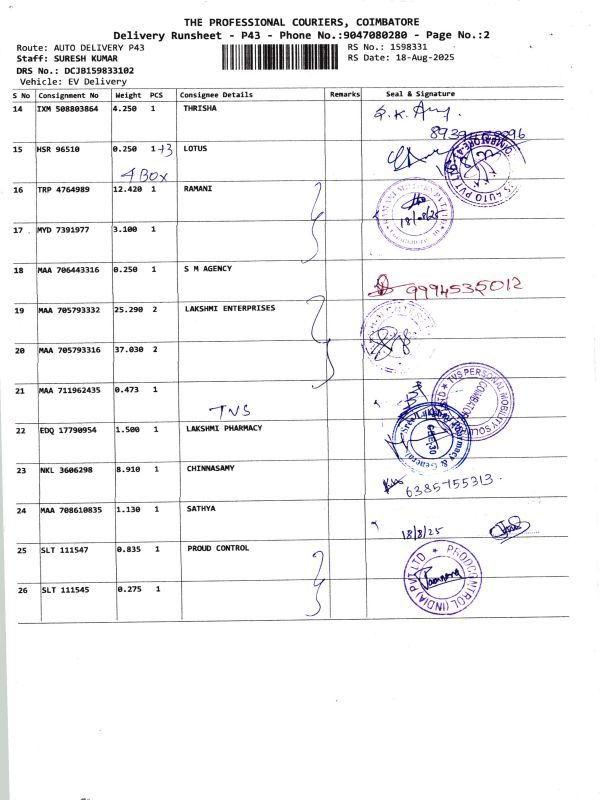 THE PROFESSIONAL COURIERS, COIMBATORE
Delivery Runsheet - P43 - Phone No.:9047080280 - Page No.:2
Route: AUTO DELIVERY P43
RS No.: 1598331
Staff: SURESH KUMAR
RS Date: 18-Aug-2025
DRS No.: DCJB159833102
Vehicle: EV Delivery
S No Consignment No Weight PCS Consignee Details Remarks Seal & Signature
14 IXM 508803864 4.250 1 THRISHA
15 HSR 96510 0.250 1 +3 LOTUS
4 BOX
16 TRP 4764989 12.420 1 RAMANI
18/08/25
17 MYD 7391977 3.100 1
18 MAA 706443316 0.250 1 S M AGENCY
9994535012
19 MAA 705793332 25.290 2 LAKSHMI ENTERPRISES
20 MAA 705793316 37.030 2
21 MAA 711962435 0.473 1
TVS
TVS PERSONAL MOBILITY
22 EDQ 17790954 1.500 1 LAKSHMI PHARMACY
23 NKL 3606298 8.910 1 CHINNASAMY
6385755313
24 MAA 708610835 1.130 1 SATHYA
18/8/25
25 SLT 111547 0.835 1 PROUD CONTROL
PRODCONTROL (INDIA) PVT LTD
26 SLT 111545 0.275 1